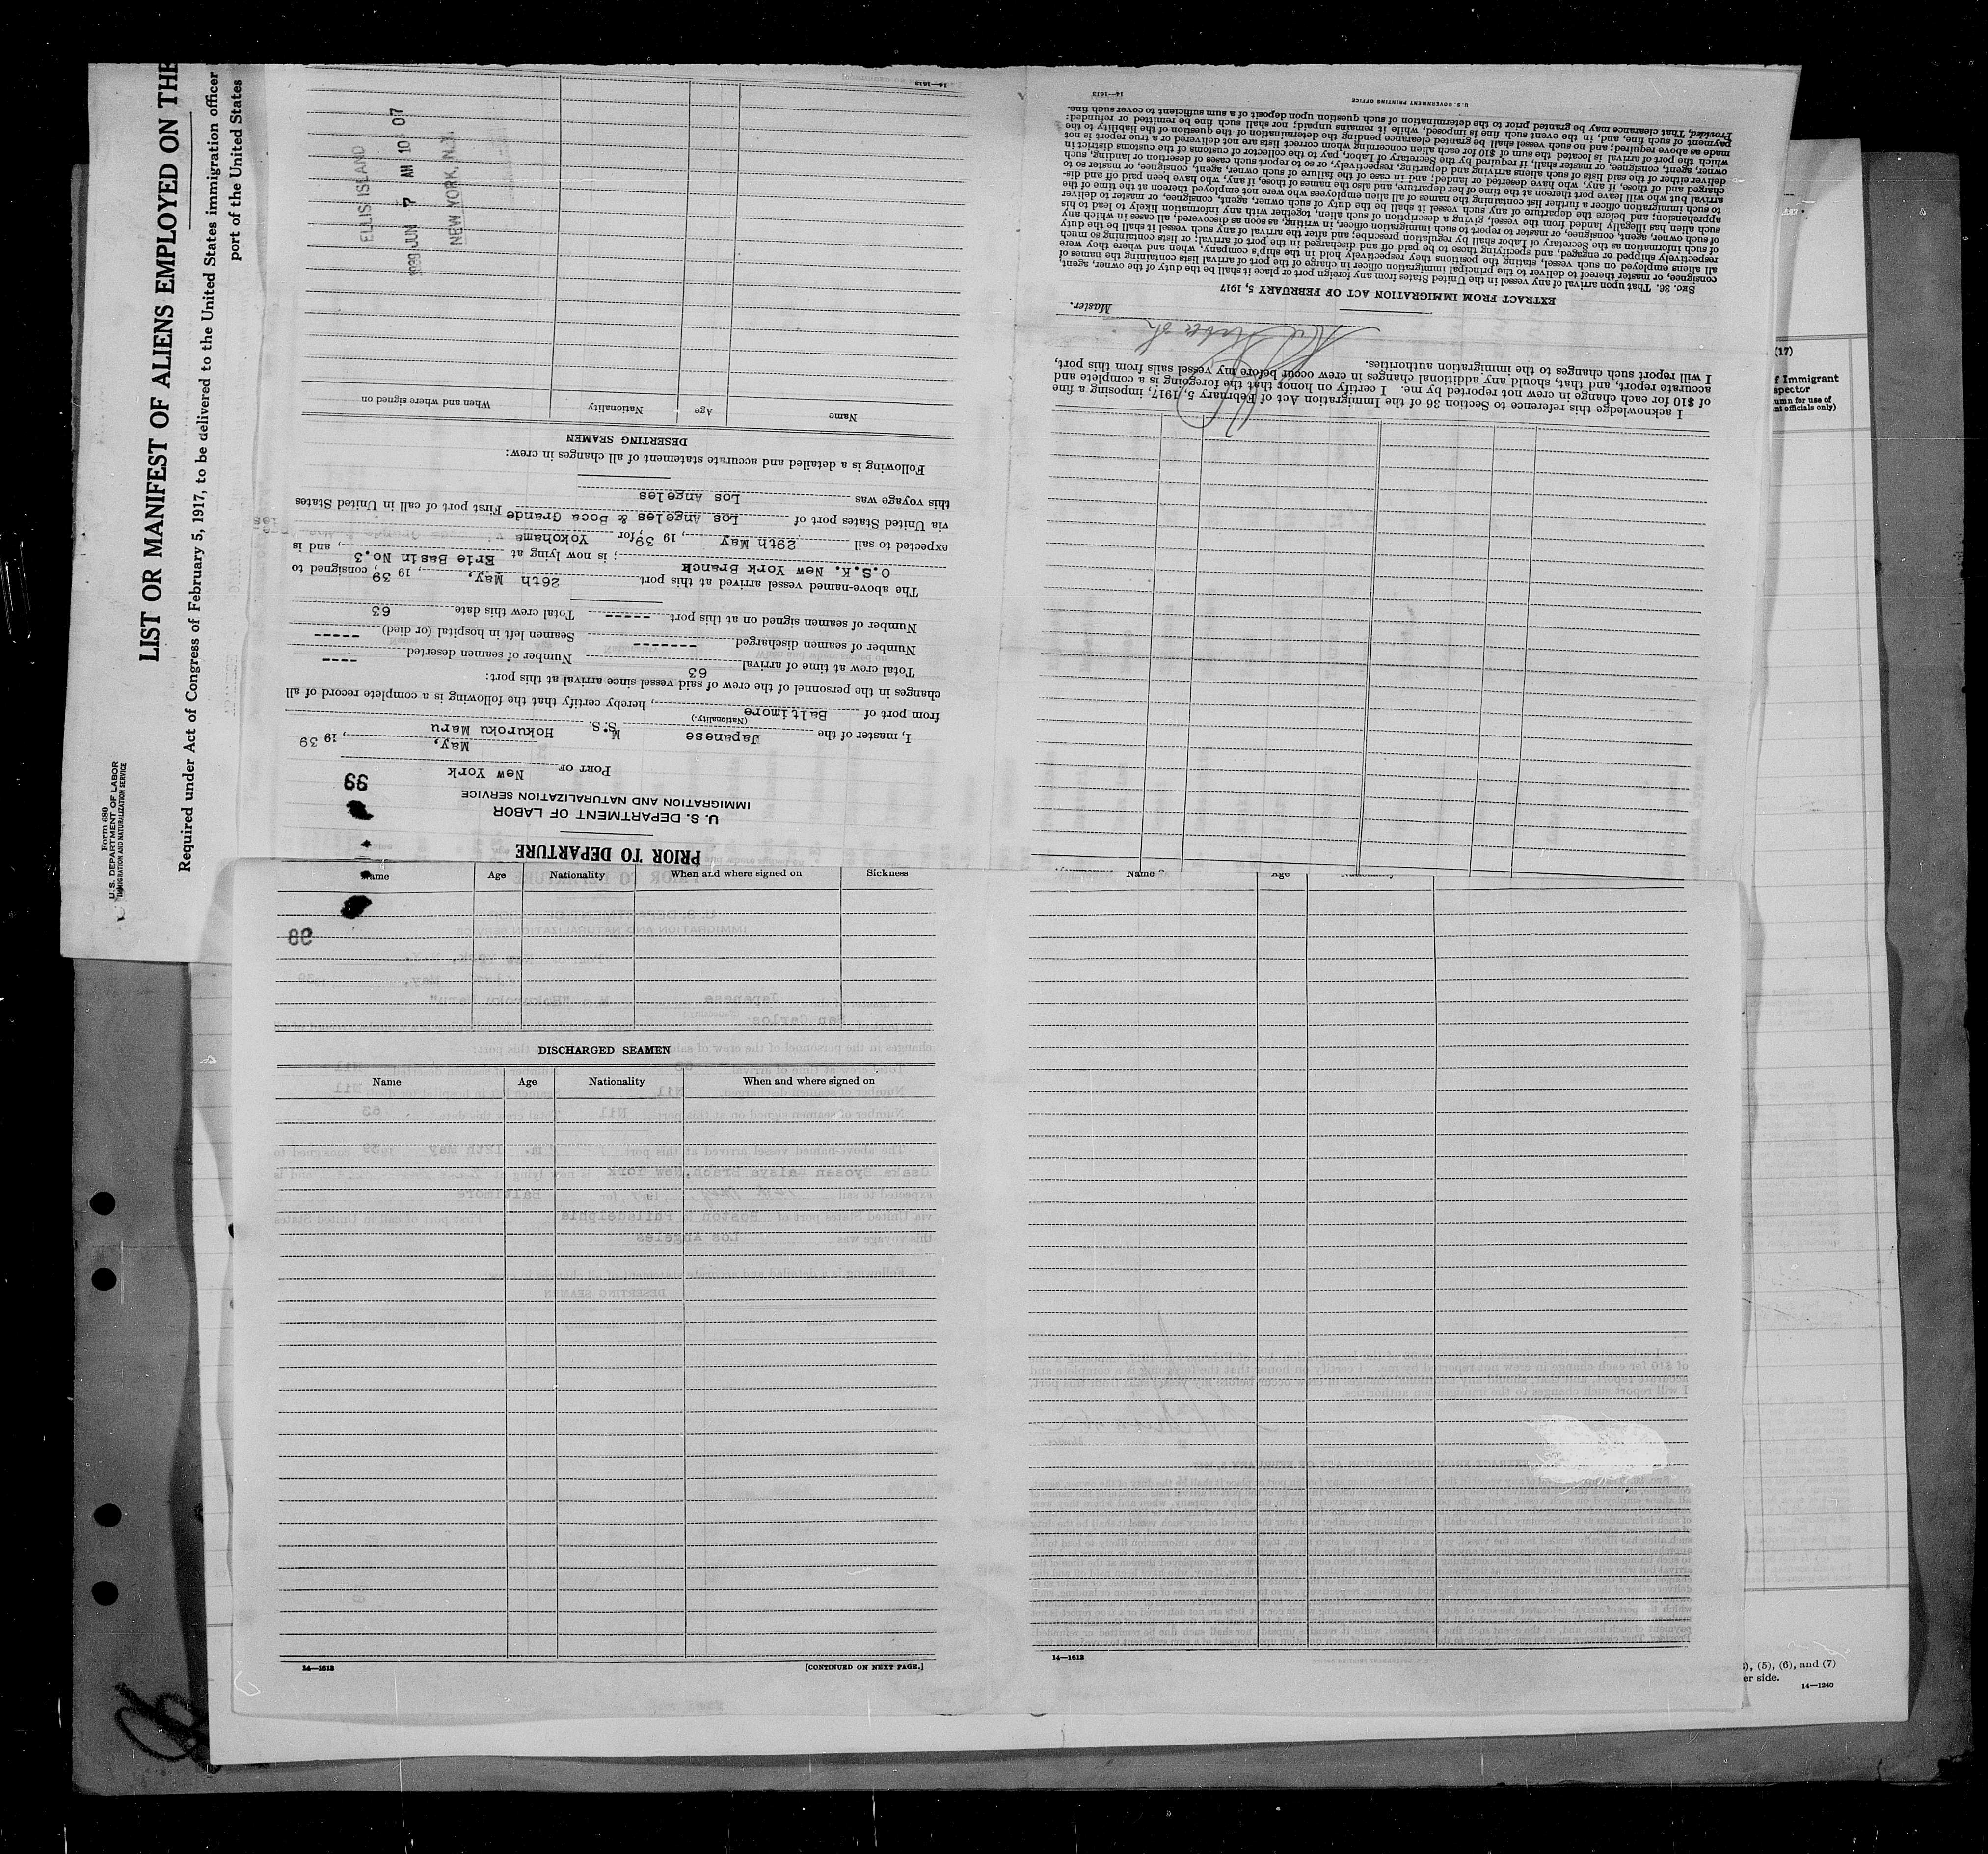 LIST OR MANIFEST OF ALIENS EMPLOYED ON THE
Required under Act of Congress of February 5, 1917, to be delivered to the United States immigration officer
port of the United States
Form 680
U. S. DEPARTMENT OF LABOR
IMMIGRATION AND NATURALIZATION SERVICE
PRIOR TO DEPARTURE
U. S. DEPARTMENT OF LABOR
IMMIGRATION AND NATURALIZATION SERVICE
99
PORT OF New York
May, , 19 39
I, master of the Japanese M.S. S. Hokuroku Maru
(Nationality.)
from port of Baltimore , hereby certify that the following is a complete record of all
changes in the personnel of the crew of said vessel since arrival at this port:
Total crew at time of arrival 63 Number of seamen deserted ----
Number of seamen discharged ------- Seamen left in hospital (or died) -----
Number of seamen signed on at this port ----- Total crew this date 63
The above-named vessel arrived at this port 26th May, , 19 39, consigned to
O.S.K. New York Branch ; is now lying at Erie Basin No.3 , and is
expected to sail 29th May , 19 39, for Yokohama
via United States port of Los Angeles & Boca Grande First port of call in United States
this voyage was Los Angeles
Following is a detailed and accurate statement of all changes in crew:
DESERTING SEAMEN
Name Age Nationality When and where signed on
ELLIS ISLAND
1939 JUN 7 AM 10 07
NEW YORK, N.Y.
14—1613
I acknowledge this reference to Section 36 of the Immigration Act of February 5, 1917, imposing a fine
of $10 for each change in crew not reported by me. I certify on honor that the foregoing is a complete and
accurate report, and that, should any additional changes in crew occur before my vessel sails from this port,
I will report such changes to the immigration authorities.
Master.
EXTRACT FROM IMMIGRATION ACT OF FEBRUARY 5, 1917
SEC. 36. That upon arrival of any vessel in the United States from any foreign port or place it shall be the duty of the owner, agent,
consignee, or master thereof to deliver to the principal immigration officer in charge of the port of arrival lists containing the names of
all aliens employed on such vessel, stating the positions they respectively hold in the ship's company, when and where they were
respectively shipped or engaged, and specifying those to be paid off and discharged in the port of arrival; or lists containing so much
of such information as the Secretary of Labor shall by regulation prescribe; and after the arrival of any such vessel it shall be the duty
of such owner, agent, consignee, or master to report to such immigration officer, in writing, as soon as discovered, all cases in which any
such alien has illegally landed from the vessel, giving a description of such alien, together with any information likely to lead to his
apprehension; and before the departure of any such vessel it shall be the duty of such owner, agent, consignee, or master to deliver
to such immigration officer a further list containing the names of all alien employees who were not employed thereon at the time of the
arrival but who will leave port thereon at the time of her departure, and also the names of those, if any, who have been paid off and dis-
charged and of those, if any, who have deserted or landed; and in case of the failure of such owner, agent, consignee, or master so to
deliver either of the said lists of such aliens arriving and departing, respectively, or so to report such cases of desertion or landing, such
owner, agent, consignee, or master shall, if required by the Secretary of Labor, pay to the collector of customs of the customs district in
which the port of arrival is located the sum of $10 for each alien concerning whom correct lists are not delivered or a true report is not
made as above required; and no such vessel shall be granted clearance pending the determination of the question of the liability to the
payment of such fine, and, in the event such fine is imposed, while it remains unpaid; nor shall such fine be remitted or refunded:
Provided, That clearance may be granted prior to the determination of such question upon deposit of a sum sufficient to cover such fine.
U. S. GOVERNMENT PRINTING OFFICE
14—1613
(17)
f Immigrant
spector
umn for use of
nt officials only)
Name Age Nationality When and where signed on Sickness
98
DISCHARGED SEAMEN
Name Age Nationality When and where signed on
14—1613
[CONTINUED ON NEXT PAGE.]
Name Age
14—1613
), (5), (6), and (7)
er side.
14—1240